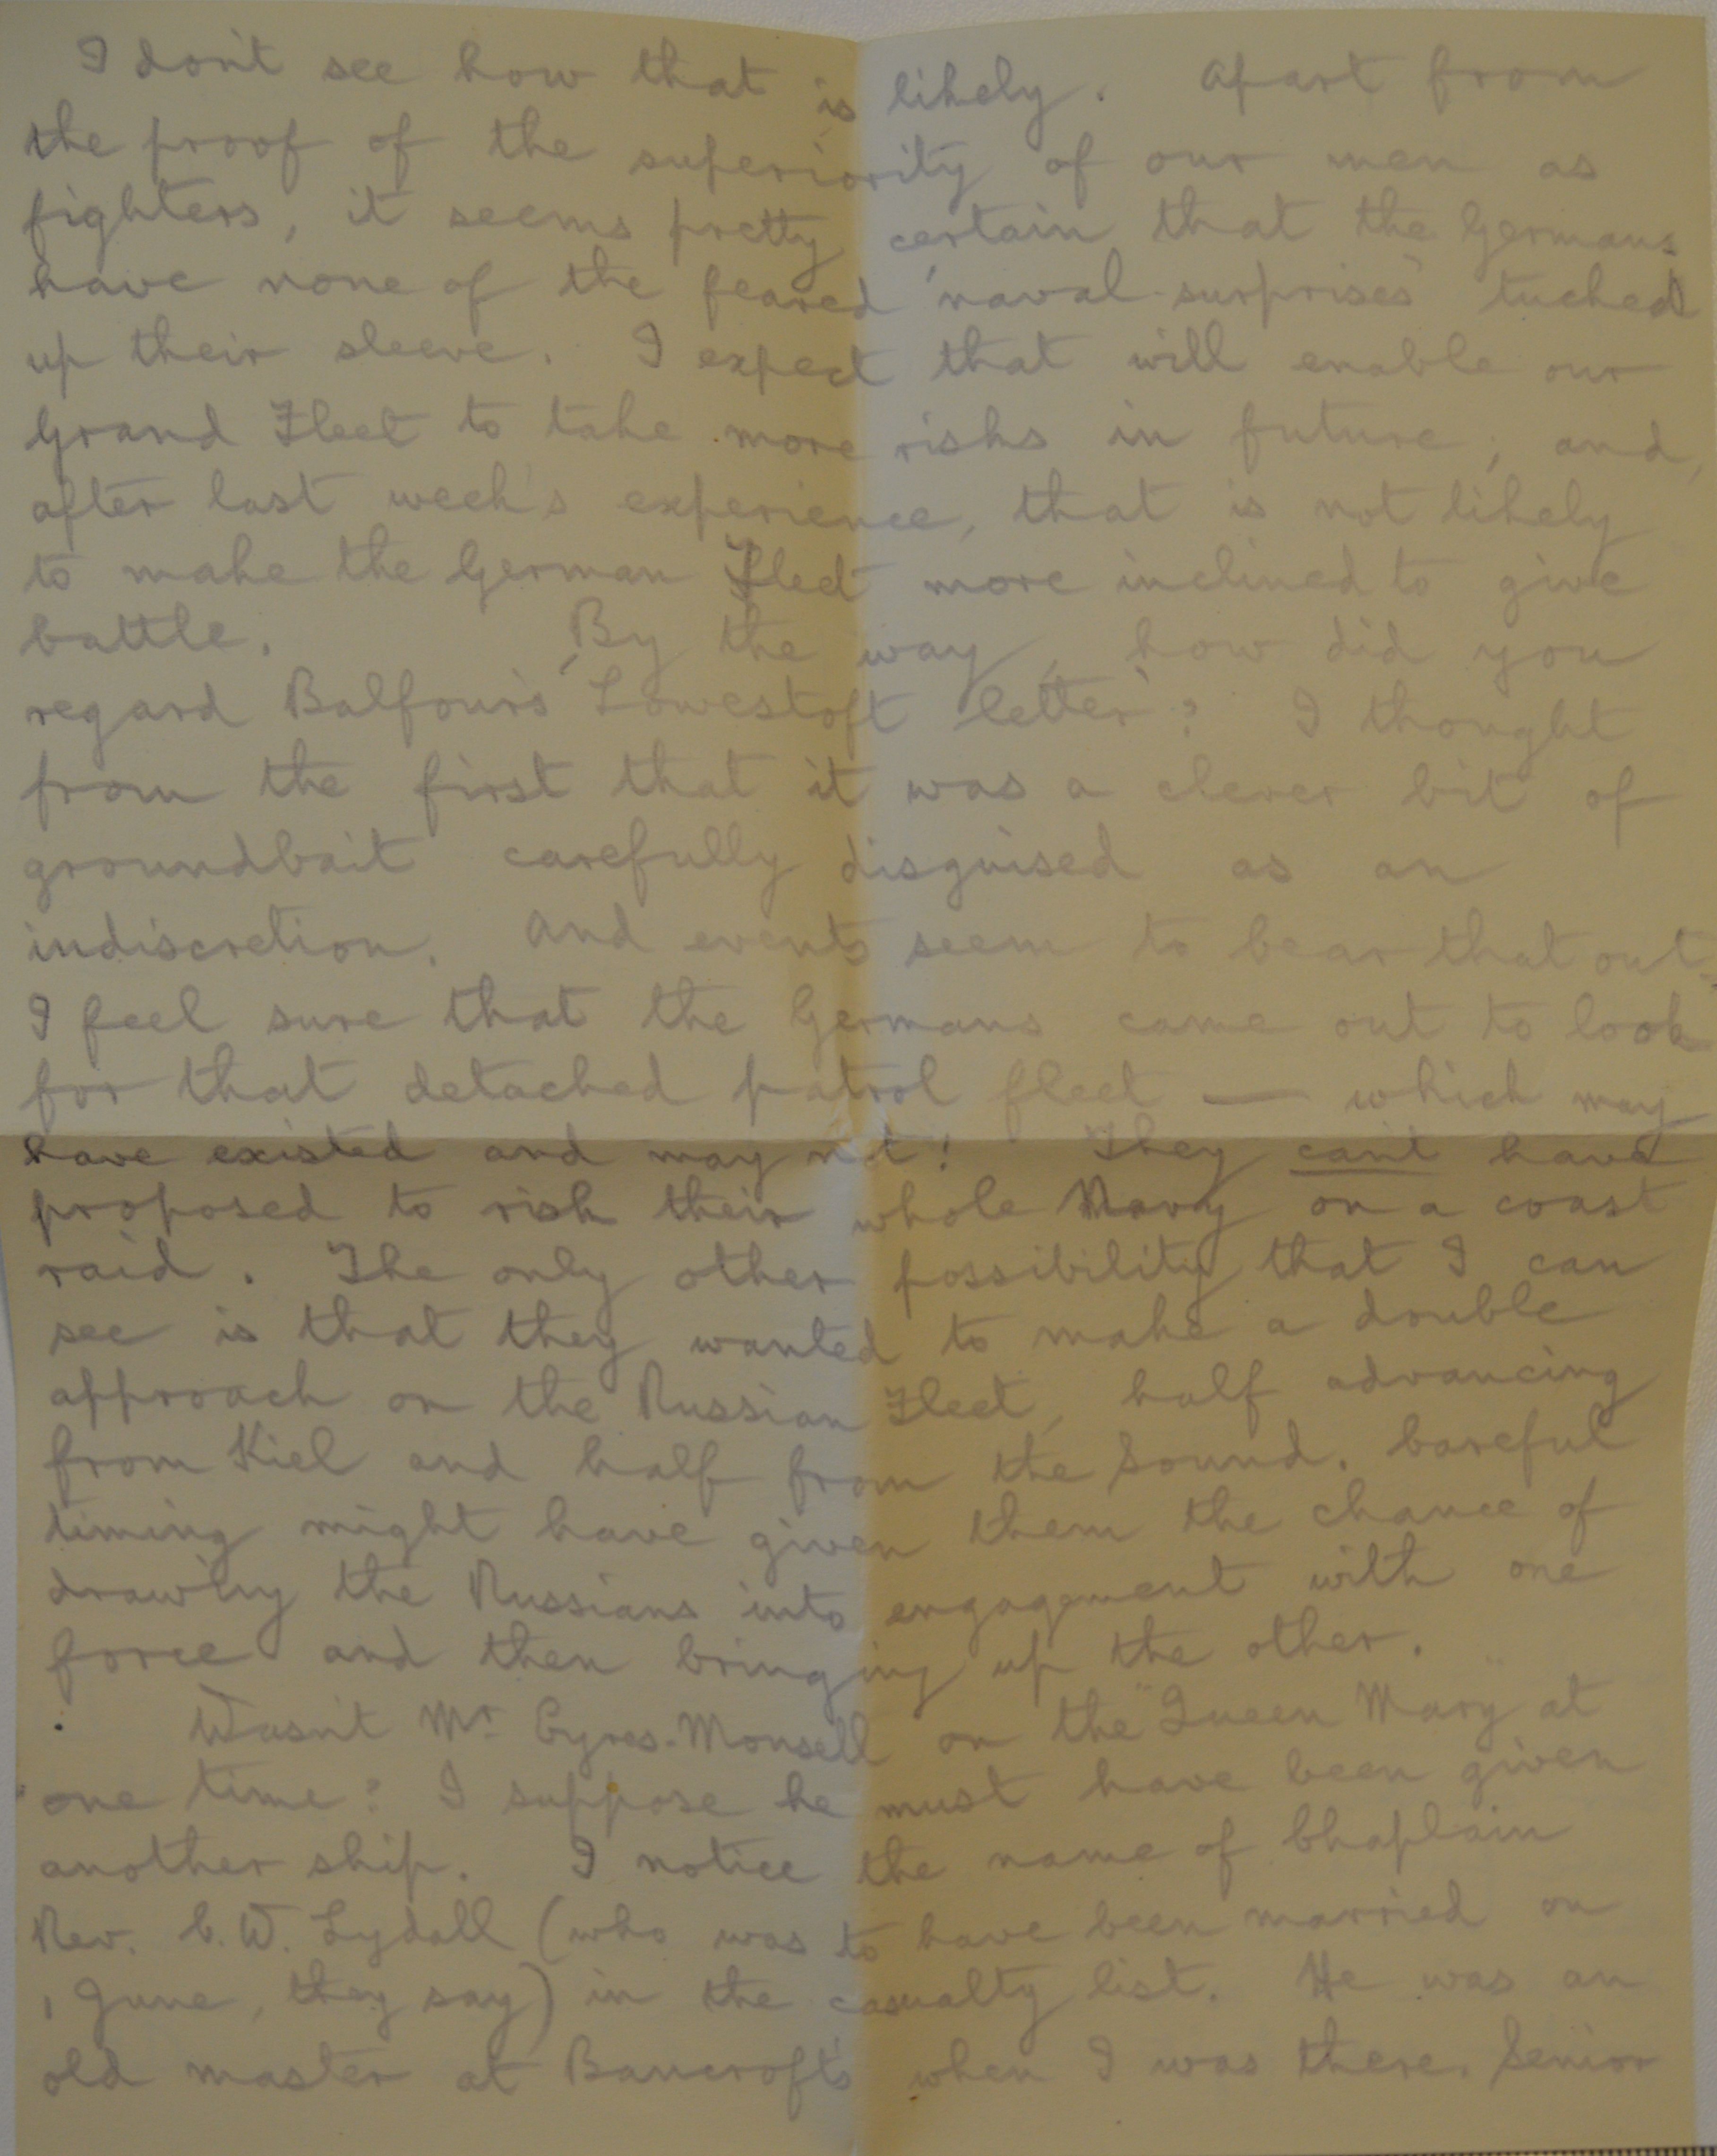 I don't see how that is likely. Apart from
the proof of the superiority of our men as
fighters, it seems pretty certain that the Germans
have none of the feared 'naval surprises' tucked
up their sleeve. I expect that will enable our
Grand Fleet to take more risks in future; and,
after last week's experience, that is not likely
to make the German Fleet more inclined to give
battle. By the way, how did you
regard Balfour's 'Lowestoft letter'? I thought
from the first that it was a clever bit of
groundbait carefully disguised as an
indiscretion. And events seem to bear that out.
I feel sure that the Germans came out to look
for that detached patrol fleet — which may
have existed and may not! They can't have
proposed to risk their whole Navy on a coast
raid. The only other possibility that I can
see is that they wanted to make a double
approach on the Russian Fleet, half advancing
from Kiel and half from the Sound. Careful
timing might have given them the chance of
drawing the Russians into engagement with one
force and then bringing up the other.
Wasn't Mr Eyres-Monsell on the "Queen Mary" at
one time? I suppose he must have been given
another ship. I notice the name of Chaplain
Rev. C. W. Lydall (who was to have been married on
1 June, they say) in the casualty list. He was an
old master at Bancroft's when I was there. Senior